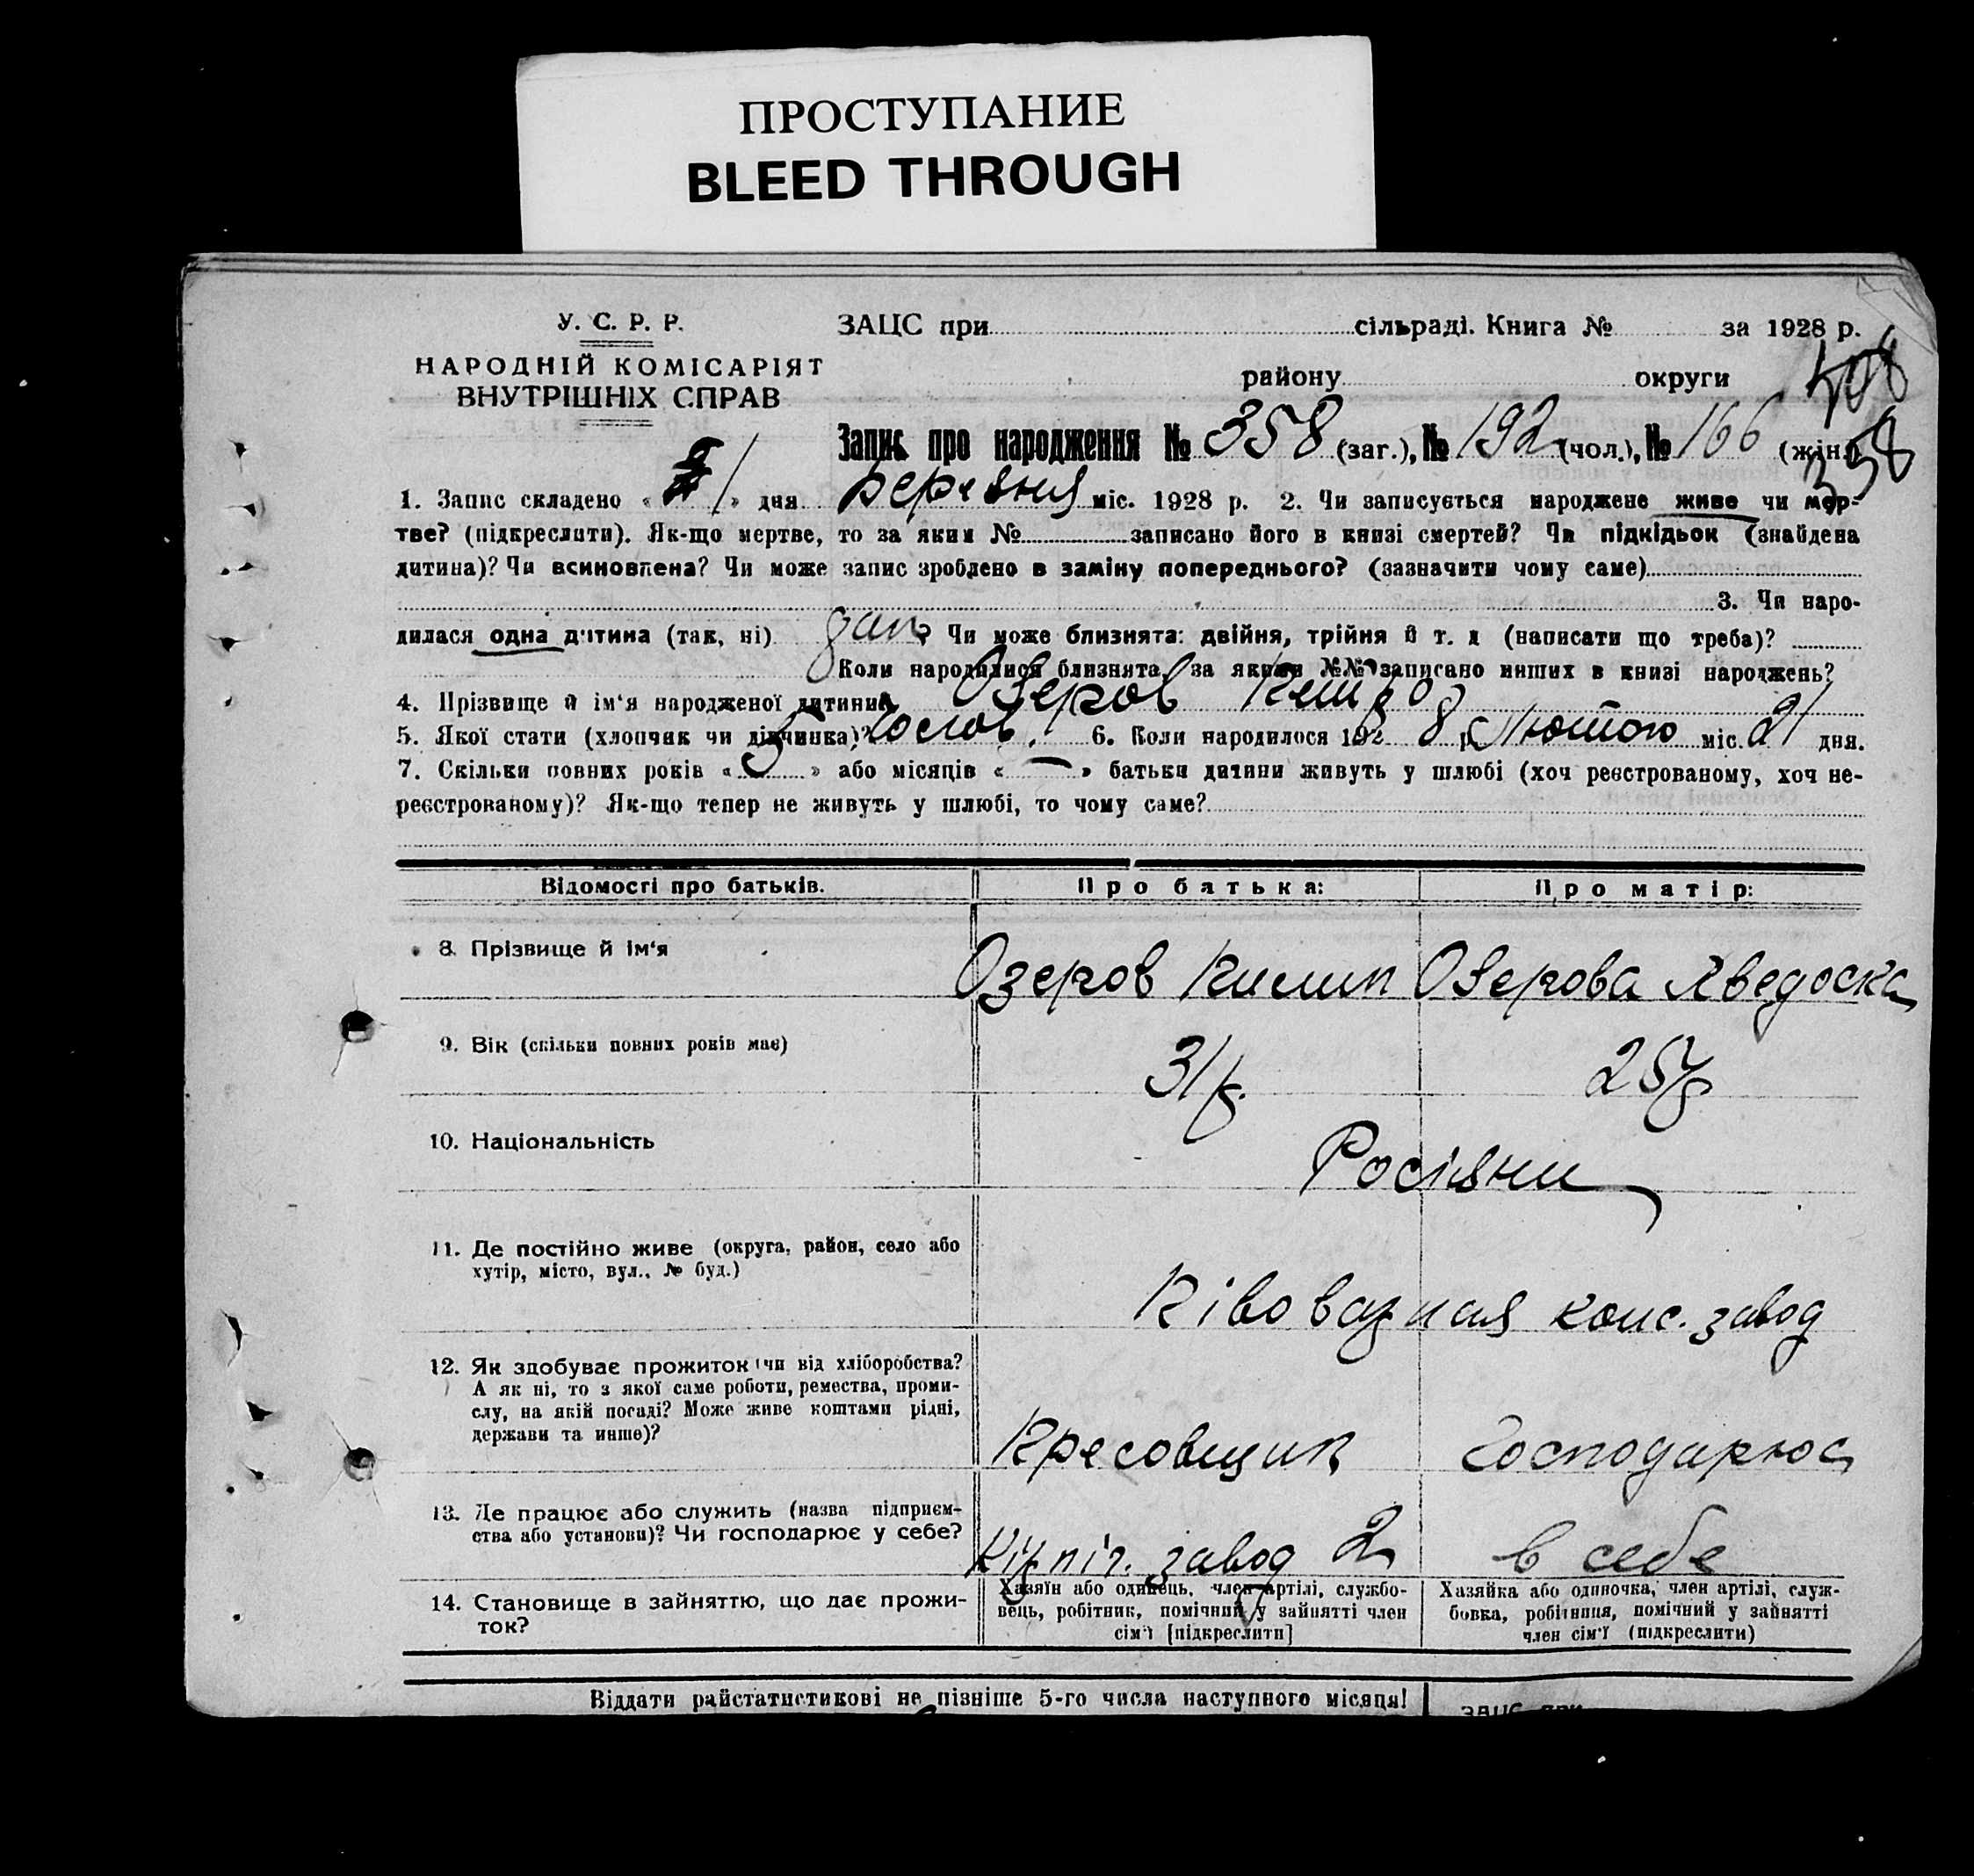 ПРОСТУПАНИЕ
BLEED THROUGH
У. С. Р. Р.
НАРОДНІЙ КОМІСАРІЯТ
ВНУТРІШНІХ СПРАВ
ЗАЦС при сільраді. Книга № за 1928 р.
району округи
358
Запис про народження № 358 (заг.), № 192 (чол.), № 166 (жін.)
1. Запис складено « » дня березня міс. 1928 р. 2. Чи записується народжене живе чи мер-
тве? (підкреслити). Як-що мертве, то за яким № записано його в книзі смертей? Чи підкідьок (знайдена
дитина)? Чи всиновлена? Чи може запис зроблено в заміну попереднього? (зазначити чому саме)
3. Чи наро-
дилася одна дитина (так, ні) ? Чи може близнята: двійня, трійня й т. д (написати що треба)?
Коли народилися близнята, за якими №№ записано инших в книзі народжень?
4. Прізвище й ім'я народженої дитини Озеров
5. Якої стати (хлопчик чи дівчинка)? 6. Коли народилося 1928 р. Лютого міс. 21 дня.
7. Скільки повних років « 5 » або місяців « — » батьки дитини живуть у шлюбі (хоч реєстрованому, хоч не-
реєстрованому)? Як-що тепер не живуть у шлюбі, то чому саме?
Відомості про батьків. Про батька: Про матір:
8. Прізвище й ім'я
Озеров Озерова Яведоска
9. Вік (скільки повних років має)
31 р. 25 р
10. Національність
Росіяни
11. Де постійно живе (округа, район, село або
хутір, місто, вул., № буд.)
конс. завод
12. Як здобуває прожиток чи від хліборобства?
А як ні, то з якої саме роботи, ремества, проми-
слу, на якій посаді? Може живе коштами рідні,
держави та инше)?
Пресовщик Господарює
13. Де працює або служить (назва підприєм-
ства або установи)? Чи господарює у себе?
завод 2 в себе
14. Становище в зайняттю, що дає прожи-
ток?
Хазяїн або одинець, член артілі, службо-
вець, робітник, помічний у зайнятті член
сім'ї [підкреслити]
Хазяйка або одиночка, член артілі, служ-
бовка, робітниця, помічний у зайнятті
член сім'ї (підкреслити)
Віддати райстатистикові не пізніше 5-го числа наступного місяця!
ЗАЦС при